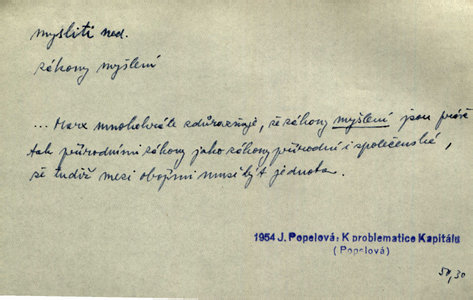 mysliti ned.
zákony myšlení
... Marx mnohokráte zdůrazňuje, že zákony myšlení jsou právě
tak přírodními zákony jako zákony přírodní i společenské,
že tudíž mezi obojími musí být jednota.
1954 J. Popelová: K problematice Kapitálu
(Popelová)
50,30